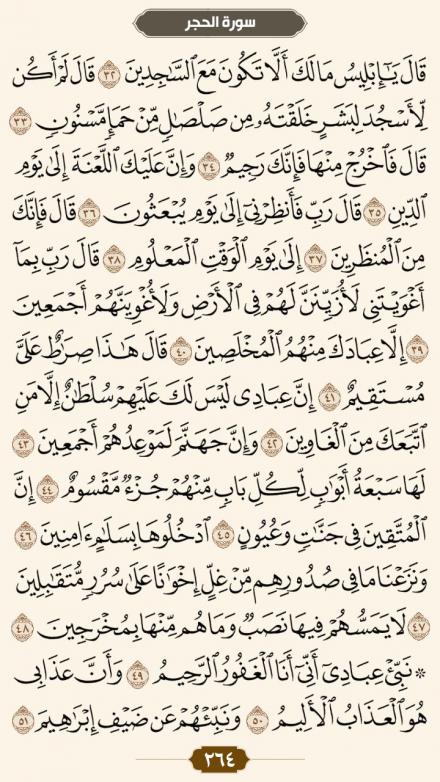 سورة الحجر
قَالَ يَٰٓإِبْلِيسُ مَا لَكَ أَلَّا تَكُونَ مَعَ ٱلسَّٰجِدِينَ ٣٢ قَالَ لَمْ أَكُن
لِّأَسْجُدَ لِبَشَرٍ خَلَقْتَهُۥ مِن صَلْصَٰلٍ مِّنْ حَمَإٍ مَّسْنُونٍ ٣٣
قَالَ فَٱخْرُجْ مِنْهَا فَإِنَّكَ رَجِيمٌ ٣٤ وَإِنَّ عَلَيْكَ ٱللَّعْنَةَ إِلَىٰ يَوْمِ
ٱلدِّينِ ٣٥ قَالَ رَبِّ فَأَنظِرْنِىٓ إِلَىٰ يَوْمِ يُبْعَثُونَ ٣٦ قَالَ فَإِنَّكَ
مِنَ ٱلْمُنظَرِينَ ٣٧ إِلَىٰ يَوْمِ ٱلْوَقْتِ ٱلْمَعْلُومِ ٣٨ قَالَ رَبِّ بِمَآ
أَغْوَيْتَنِى لَأُزَيِّنَنَّ لَهُمْ فِى ٱلْأَرْضِ وَلَأُغْوِيَنَّهُمْ أَجْمَعِينَ
٣٩ إِلَّا عِبَادَكَ مِنْهُمُ ٱلْمُخْلَصِينَ ٤٠ قَالَ هَٰذَا صِرَٰطٌ عَلَىَّ
مُسْتَقِيمٌ ٤١ إِنَّ عِبَادِى لَيْسَ لَكَ عَلَيْهِمْ سُلْطَٰنٌ إِلَّا مَنِ
ٱتَّبَعَكَ مِنَ ٱلْغَاوِينَ ٤٢ وَإِنَّ جَهَنَّمَ لَمَوْعِدُهُمْ أَجْمَعِينَ ٤٣
لَهَا سَبْعَةُ أَبْوَٰبٍ لِّكُلِّ بَابٍ مِّنْهُمْ جُزْءٌ مَّقْسُومٌ ٤٤ إِنَّ
ٱلْمُتَّقِينَ فِى جَنَّٰتٍ وَعُيُونٍ ٤٥ ٱدْخُلُوهَا بِسَلَٰمٍ ءَامِنِينَ ٤٦
وَنَزَعْنَا مَا فِى صُدُورِهِم مِّنْ غِلٍّ إِخْوَٰنًا عَلَىٰ سُرُرٍ مُّتَقَٰبِلِينَ
٤٧ لَا يَمَسُّهُمْ فِيهَا نَصَبٌ وَمَا هُم مِّنْهَا بِمُخْرَجِينَ ٤٨
۞ نَبِّئْ عِبَادِىٓ أَنِّىٓ أَنَا ٱلْغَفُورُ ٱلرَّحِيمُ ٤٩ وَأَنَّ عَذَابِى
هُوَ ٱلْعَذَابُ ٱلْأَلِيمُ ٥٠ وَنَبِّئْهُمْ عَن ضَيْفِ إِبْرَٰهِيمَ ٥١
٢٦٤